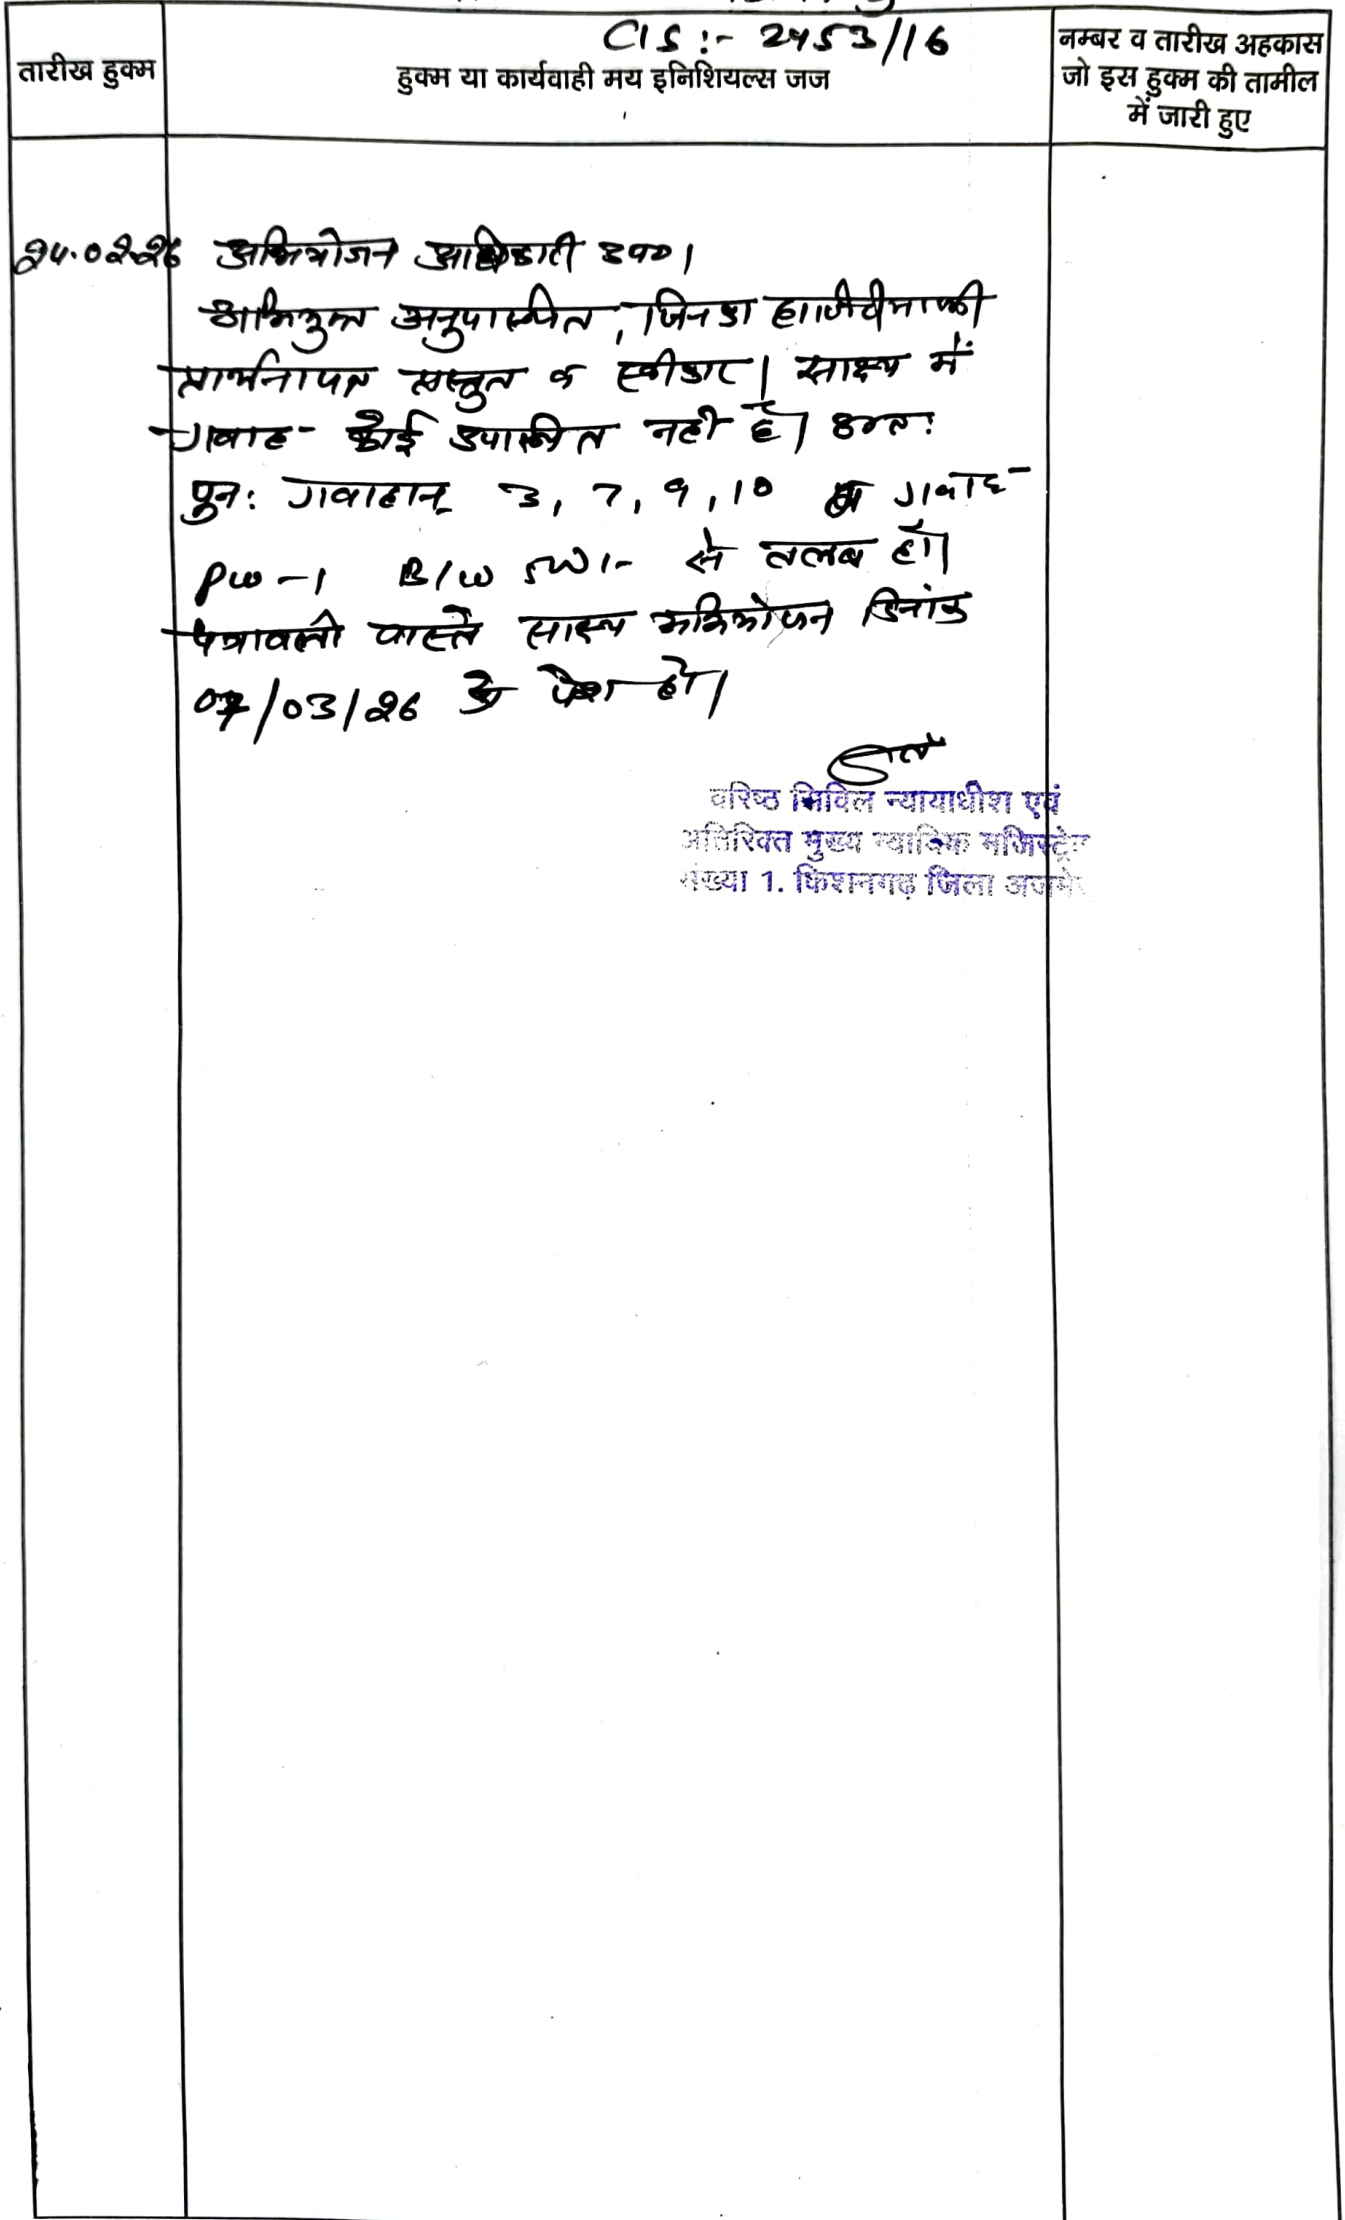 CIS :- 2453/16
तारीख हुक्म
हुक्म या कार्यवाही मय इनिशियल्स जज
नम्बर व तारीख अहकास
जो इस हुक्म की तामील
में जारी हुए
24.02.26 अभियोजन अधिकारी उप०।
अभियुक्त अनुपस्थित, जिनका हाजिरी माफी
प्रार्थनापत्र प्रस्तुत व स्वीकार। साक्ष्य में
गवाह कोई उपस्थित नहीं है। अतः
पुनः गवाहान् 3, 7, 9, 10 व गवाह
PW-1 B/W से तलब हों।
पत्रावली वास्ते साक्ष्य अभियोजन दिनांक
07/03/26 को पेश हो।
वरिष्ठ सिविल न्यायाधीश एवं
अतिरिक्त मुख्य न्यायिक मजिस्ट्रेट
संख्या 1. किशनगढ़ जिला अजमेर